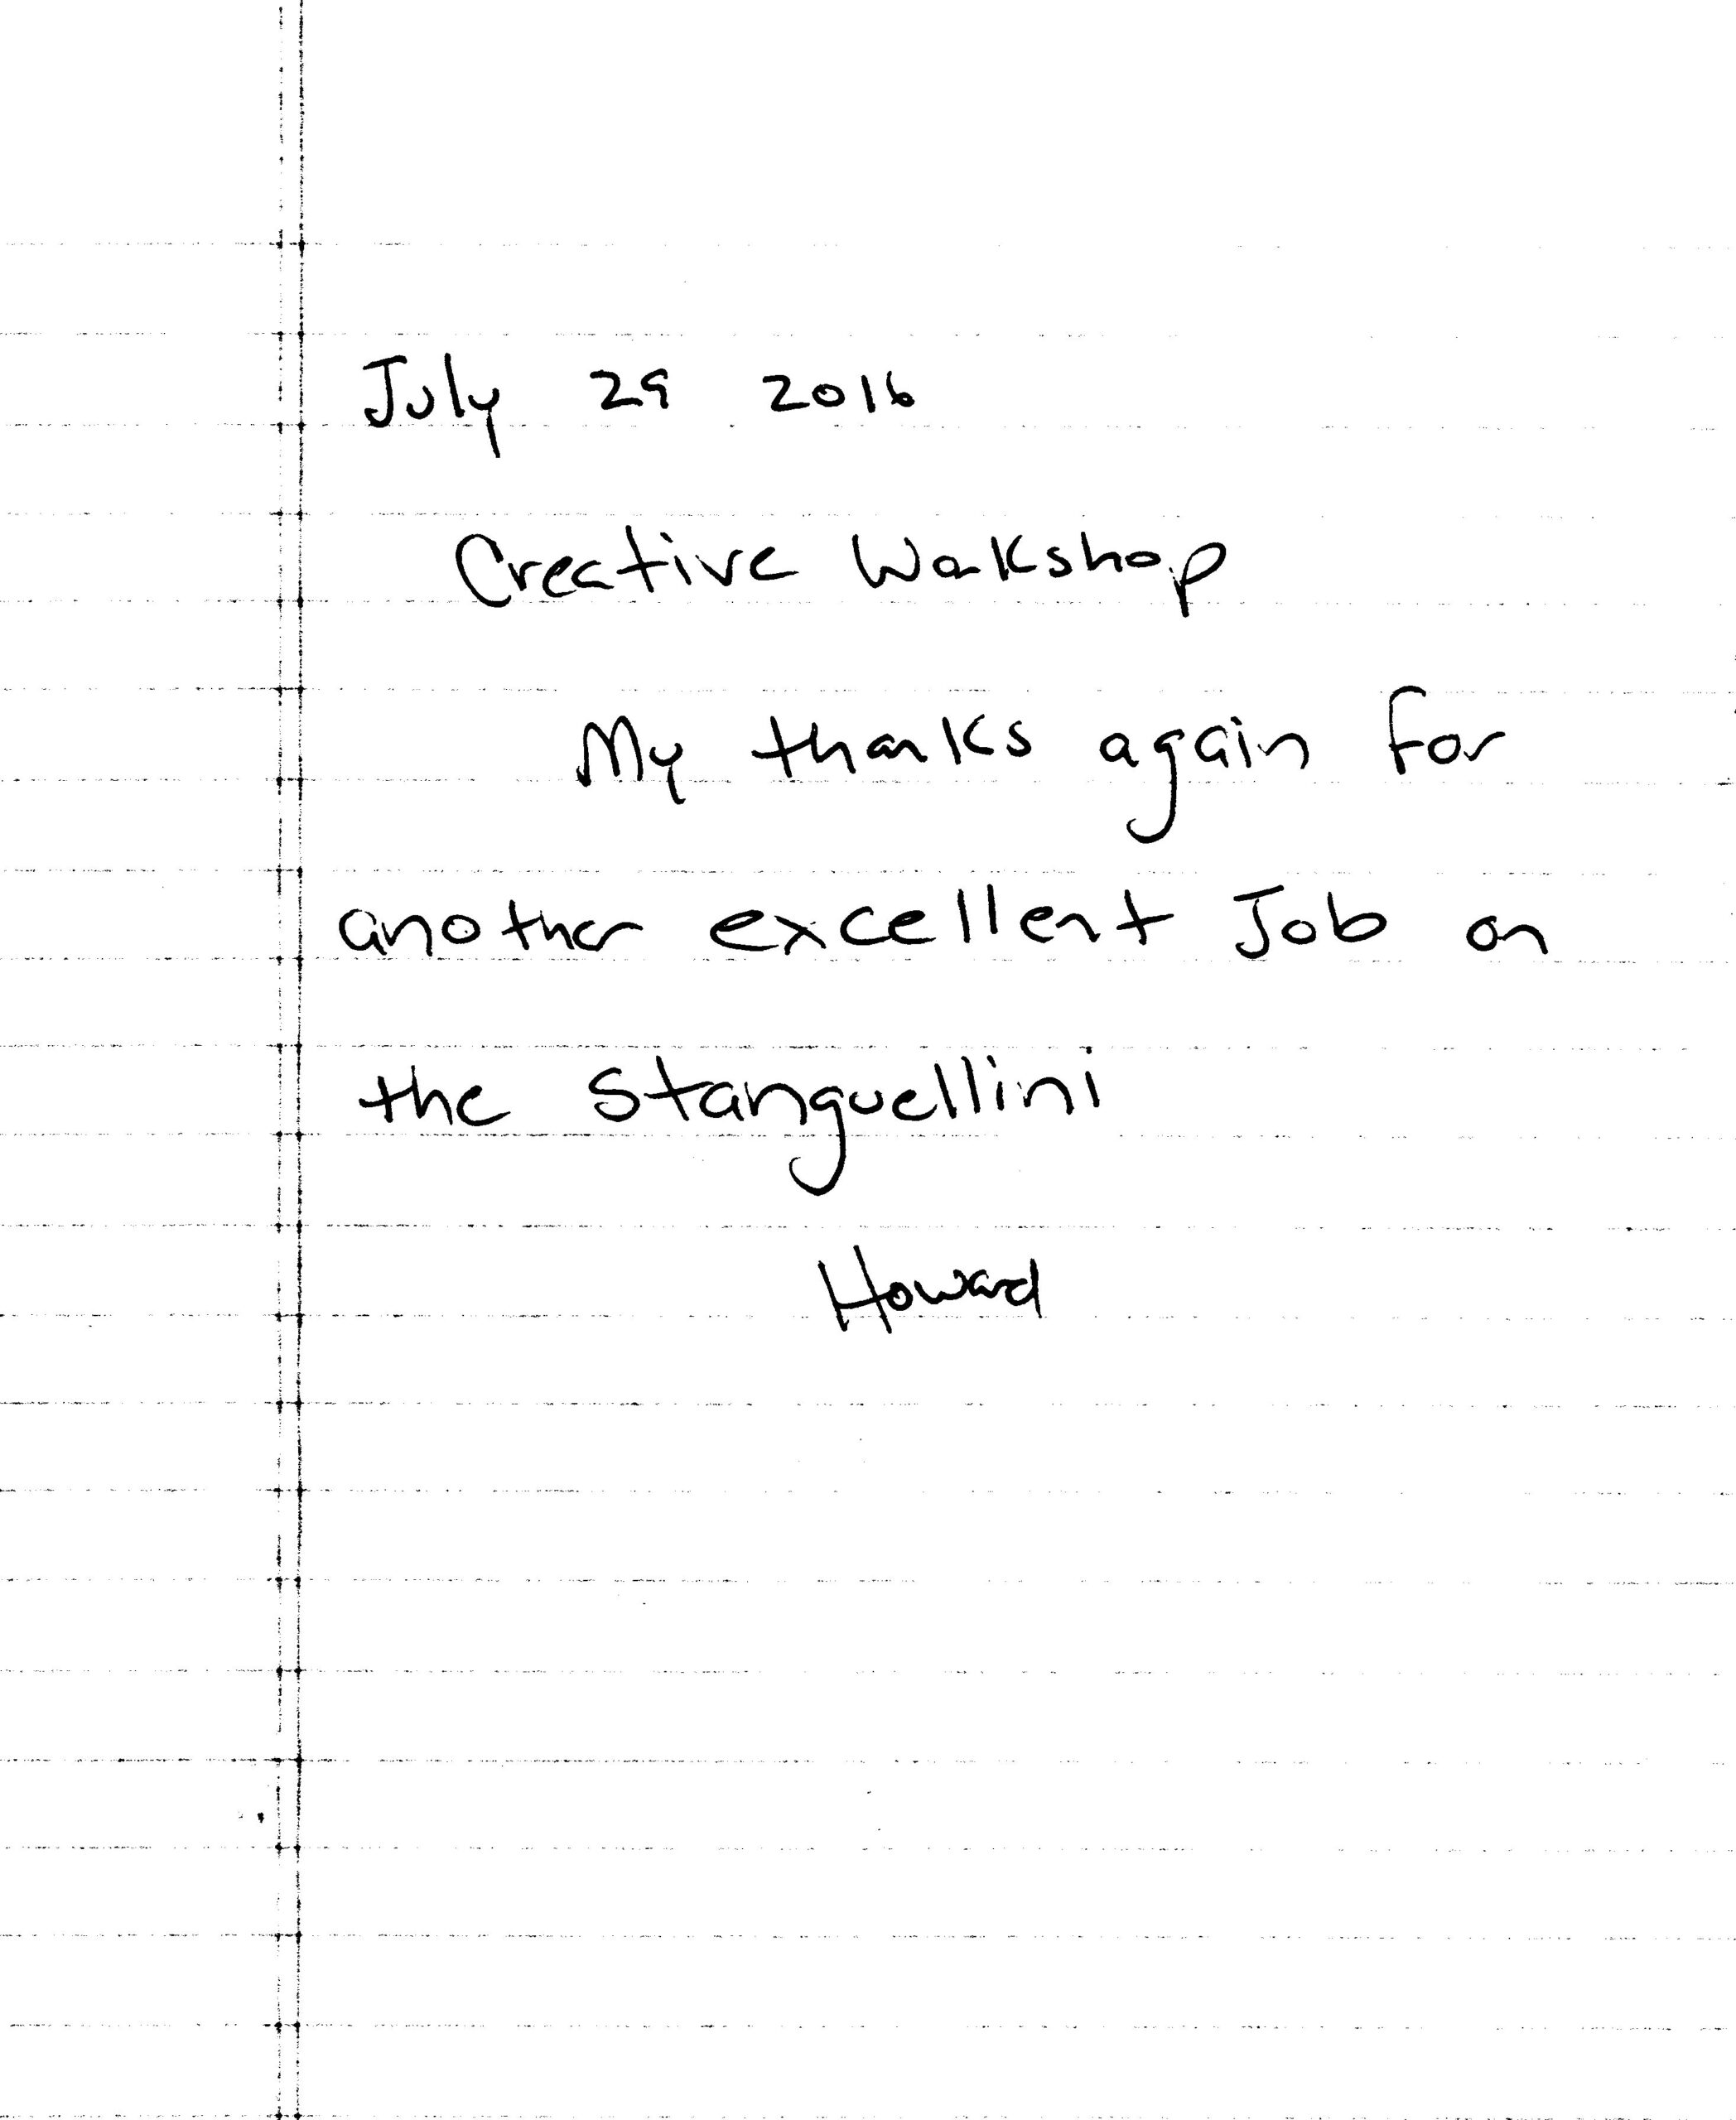 July 29 2016
Creative Workshop
My thanks again for
another excellent Job on
the Stanguellini
Howard